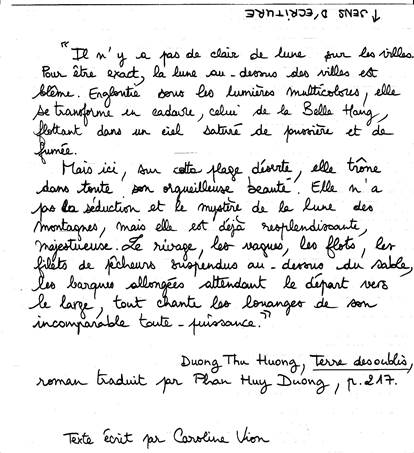 ↑ SENS D'ECRITURE
" Il n'y a pas de clair de lune sur les villes.
Pour être exact, la lune au-dessus des villes est
blême. Engloutie sous les lumières multicolores, elle
se transforme en cadavre, celui de la Belle Hang,
flottant dans un ciel saturé de poussière et de
fumée.
Mais ici, sur cette plage déserte, elle trône
dans toute son orgueilleuse beauté. Elle n'a
pas la séduction et le mystère de la lune des
montagnes, mais elle est déjà resplendissante,
majestueuse. Le rivage, les vagues, les flots, les
filets de pêcheurs suspendus au-dessus du sable,
les barques allongées attendant le départ vers
le large, tout chante les louanges de son
incomparable toute-puissance. "
Duong Thu Huong, Terre des oublis,
roman traduit par Phan Huy Duong, p. 217.
Texte écrit par Caroline Vion